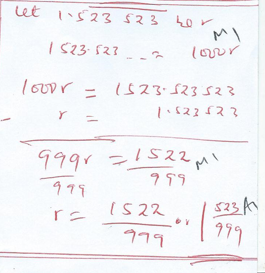 Let 1.523 523 be r
1523.523 ... = 1000r M1
1000r = 1523.523 523
- r = 1.523523
999r/999 = 1522/999 M1
r = 1522/999 or 1 523/999 A1